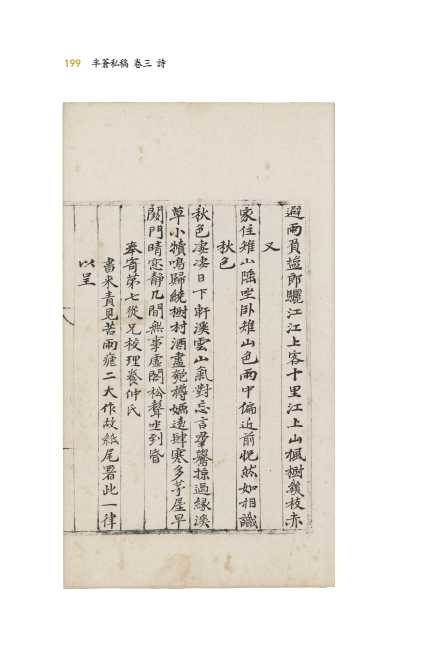 199 半蒼私稿 卷三 詩
避雨負盐郎驪江江上客十里江上山楓樹幾枝赤
又
家住雉山陰坐卧雉山色雨中偏近前怳然如相識
秋色
秋色凄凄日下軒溪雲山氣對忘言羣鷖掠過緣溪
草小犢鳴歸繞樹村酒盡匏樽嫌遠肆寒多茅屋早
関門晴窓静几閒無事虛閣松聲坐到昏
奉寄第七從兄校理養仲氏
書來責見苦雨瘧二大作故紙尾署此一律
以呈